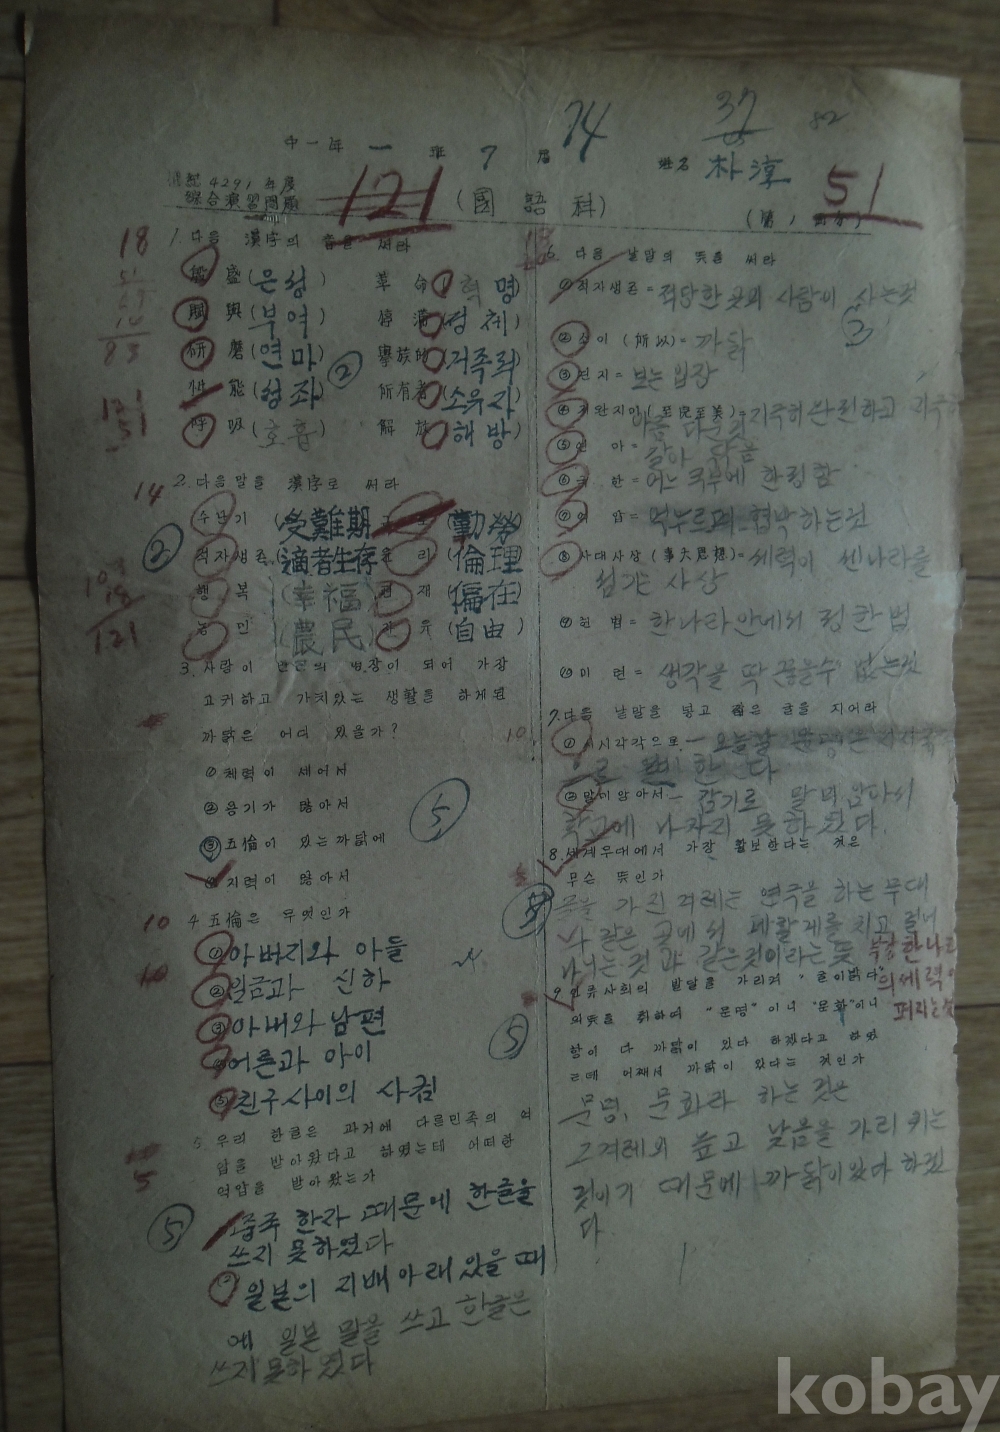 中一年 一 班 7 番 姓名 朴淳
檀紀 4291 年度
綜合演習問題 (國語科)
121
51
74
37
82
1. 다음 漢字의 音을 써라
18
盛(은성) 革命(혁명)
賦與(부여) (정체)
研磨(연마) 擧族的(거족적)
性能(성좌) 所有者(소유자)
呼吸(호흡) 解放(해방)
2. 다음말을 漢字로 써라
14
수난기(受難期) (勤勞)
적자생존(適者生存) 윤리(倫理)
행복(幸福) 편재(偏在)
농민(農民) 자유(自由)
121
3. 사람이 만물의 영장이 되어 가장
고귀하고 가치있는 생활을 하게된
까닭은 어디 있을가?
① 체력이 세어서
② 용기가 많아서
③ 五倫이 있는 까닭에
④ 지력이 많아서
10
4. 五倫은 무엇인가
① 아버지와 아들
10
② 임금과 신하
③ 아내와 남편
④ 어른과 아이
⑤ 친구사이의 사귐
5. 우리 한글은 과거에 다른민족의 억
압을 받아왔다고 하였는데 어떠한
억압을 받아왔는가
5
중국 한자 때문에 한글을
쓰지 못하였다
② 일본의 지배아래있을때
에 일본 말을 쓰고 한글은
쓰지못하였다
6. 다음 낱말의 뜻을 써라
① 적자생존= 적당한 곳의 사람이 사는것
② 소이(所以)= 까닭
③ 견지= 보는 입장
④ 지완지미(至完至美)=
⑥ 국한= 어느 국부에 한정함
⑦ 억압= 억누르며 협박하는것
⑧ 사대사상(事大思想)= 세력이 센나라를
섬기는 사상
⑨ 헌법= 한나라안에서 정한법
⑩ 미련= 생각을 딱 끊을수 없는것
7. 다음 낱말을 넣고 짧은 글을 지어라
10
① 시시각각으로 — 오늘날
로 변한다
② 말미암아서 — 감기로 말미암아서
학교에 나가지 못하였다.
8. 세계무대에서 가장 활보한다는 것은
무슨 뜻인가
가진 겨레는 연극을 하는 무대
나 같은 곳에서
다니는 것과 같은것이라는 뜻 부강한나라
의세력이
퍼지는것
9. 인류사회의 발달을 가리켜 "글이밝다"
의뜻을 취하여 "문명"이니 "문화"이니
함이 다 까닭이 있다 하겠다고 하였
는데 어째서 까닭이 있다는 것인가
문명, 문화라 하는 것은
그겨레의 높고 낮음을 가리키는
것이기 때문에 까닭이있다 하겠
다
kobay